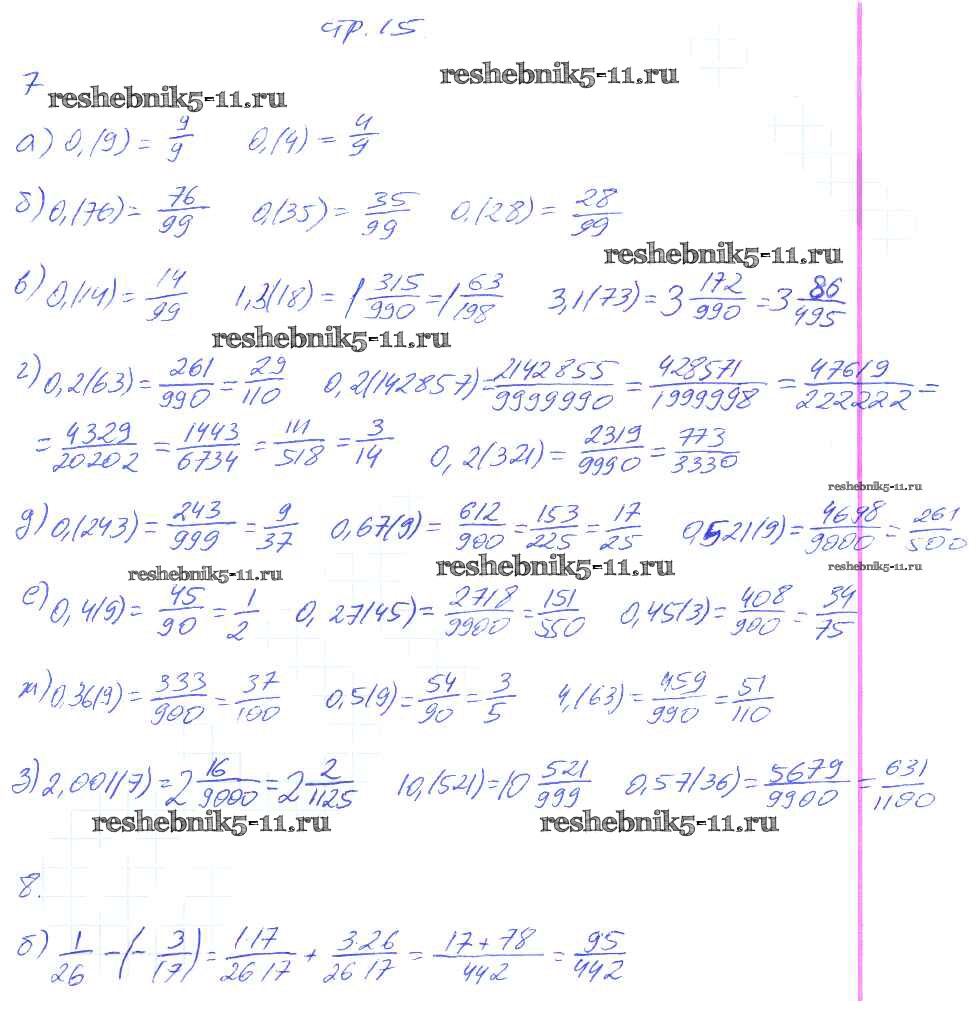 стр. 15
7
reshebnik5-11.ru
reshebnik5-11.ru
а) 0,(9) = 9/9 0,(4) = 4/9
б) 0,(76) = 76/99 0,(35) = 35/99 0,(28) = 28/99
reshebnik5-11.ru
в) 0,(14) = 14/99 1,3(18) = 1 315/990 = 1 63/198 3,1(73) = 3 172/990 = 3 86/495
reshebnik5-11.ru
г) 0,2(63) = 261/990 = 29/110 0,2(142857) = 2142855/9999990 = 428571/1999998 = 47619/222222 =
= 4329/20202 = 1443/6734 = 111/518 = 3/14 0,2(321) = 2319/9990 = 773/3330
reshebnik5-11.ru
д) 0,(243) = 243/999 = 9/37 0,67(9) = 612/900 = 153/225 = 17/25 0,521(9) = 4698/9000 = 261/500
reshebnik5-11.ru
reshebnik5-11.ru
reshebnik5-11.ru
е) 0,4(9) = 45/90 = 1/2 0,27(45) = 2718/9900 = 151/550 0,45(3) = 408/900 = 34/75
ж) 0,36(9) = 333/900 = 37/100 0,5(9) = 54/90 = 3/5 4,(63) = 459/990 = 51/110
з) 2,001(7) = 2 16/9000 = 2 2/1125 10,(521) = 10 521/999 0,57(36) = 5679/9900 = 631/1100
reshebnik5-11.ru
reshebnik5-11.ru
8.
б) 1/26 - (- 3/17) = 1·17/26·17 + 3·26/26·17 = 17+78/442 = 95/442